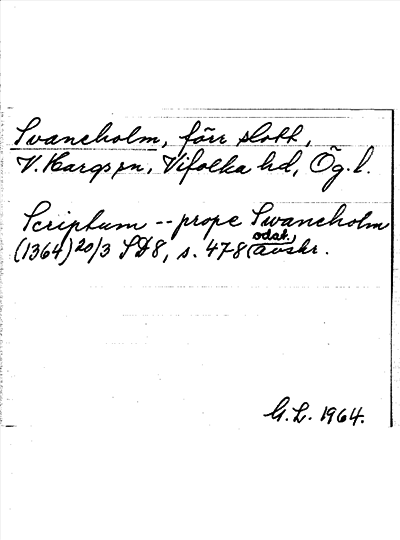 Svaneholm, förr slott,
V. Hargs sn, Vifolka hd, Ög. l.
Scriptum -- prope Swaneholm
(1364) 20/3 SD8, s. 478 (odat., avskr.
G.L. 1964.